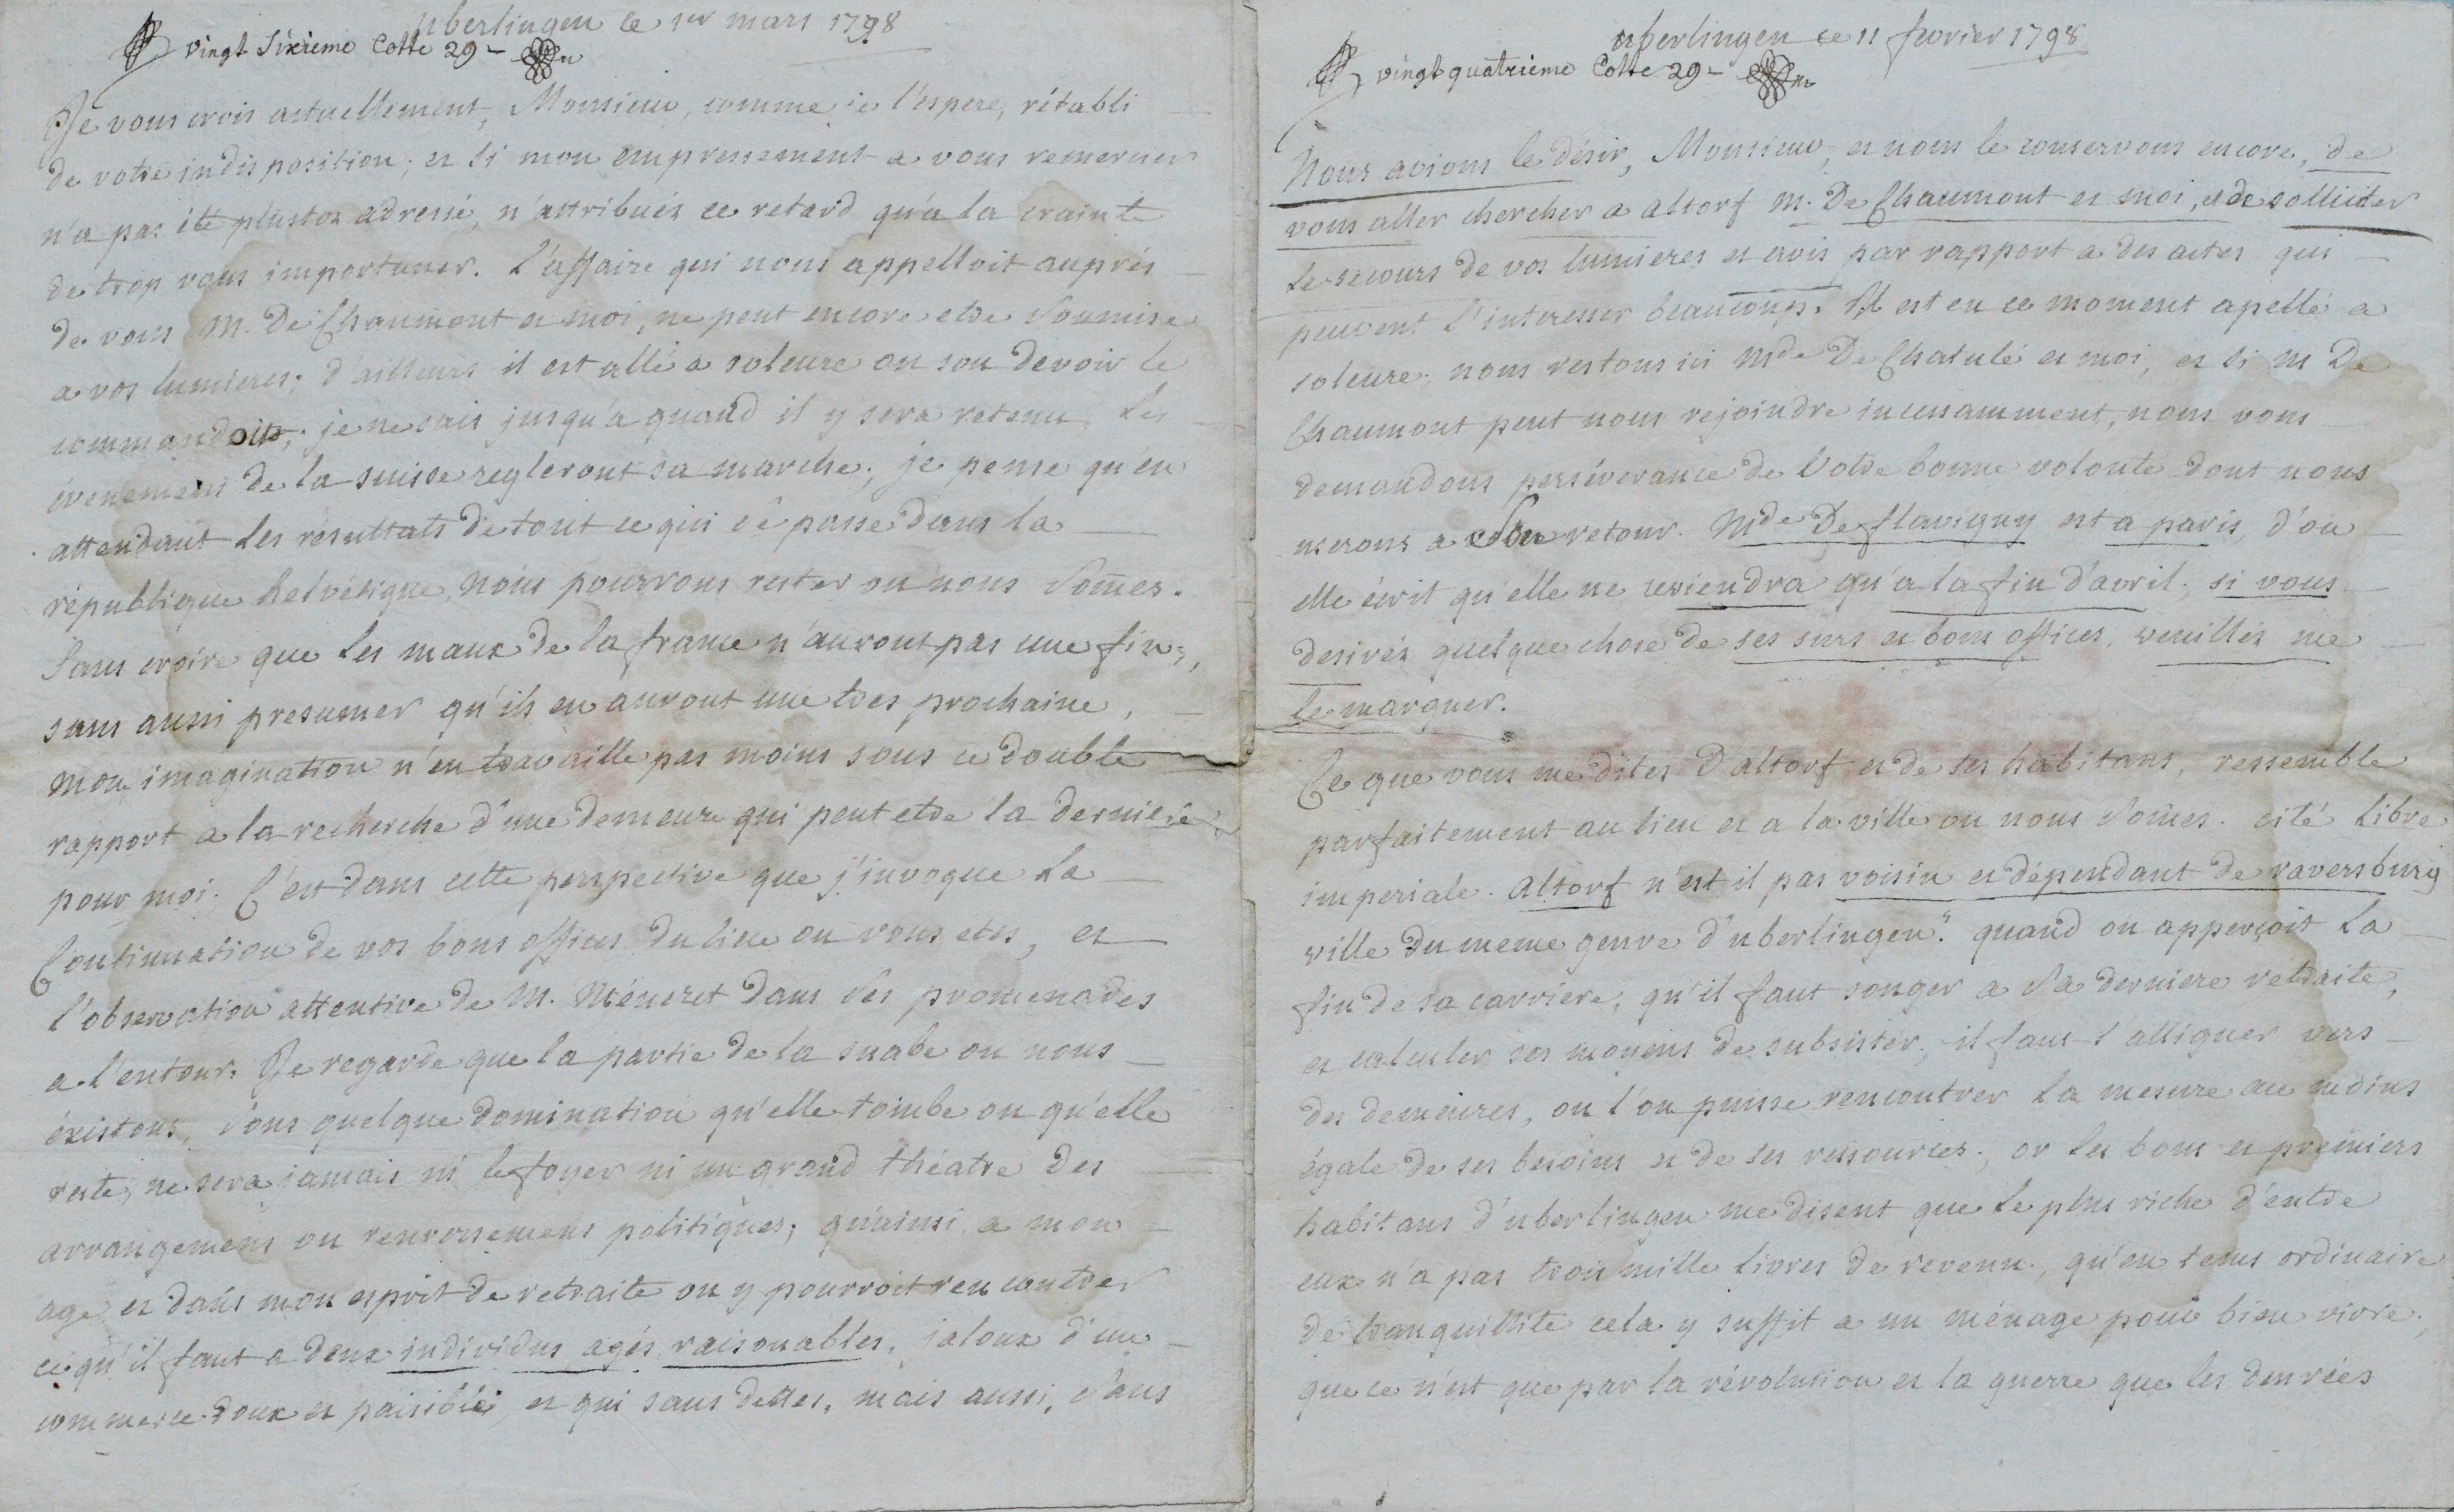 uberlingen ce 1er mars 1798
vingt sixieme Cotte 29-
Je vous crois actuellement, Monsieur, comme je l'espere, rétabli
de votre indisposition; et si mon empressement a vous remercier
n'a pas été plustot adressé, n'attribués ce retard qu'a la crainte
de trop vous importuner. L'affaire qui nous appelloit auprés
de vous M. De Chaumont et moi, ne peut encore etre soumise
a vos lumieres; d'ailleurs il est allé a soleure ou son devoir le
commandoit; je ne sais jusqu'a quand il y sera retenu. Les
évenemens de la suisse regleront sa marche; je pense qu'en
attendant les resultats de tout ce qui se passe dans la
république helvétique, nous pourrons rester ou nous somes.
Sans croire que les maux de la france n'auront pas une fin,
sans aussi presumer qu'ils en auront une tres prochaine,
mon imagination n'en travaille pas moins sous ce double
rapport a la recherche d'une demeure qui peut etre la derniere
pour moi. C'est dans cette perspective que j'invoque la
Continuation de vos bons offices du lieu ou vous etes, et
l'observation attentive de M. Méneret dans ses promenades
a l'entour. Je regarde que la partie de la suabe ou nous
éxistons, sous quelque domination qu'elle tombe ou qu'elle
reste, ne sera jamais ni le foyer ni un grand théatre des
arrangemens ou renversemens politiques; qu'ainsi a mon
age et dans mon esprit de retraite on y pourroit rencontrer
ce qu'il faut a deux individus agés raisonables, jaloux d'un
commerce doux et paisible, et qui sans dettes, mais aussi, sans
uberlingen ce 11 fevrier 1798
vingt quatrieme Cotte 29-
Nous avions le désir, Monsieur, et nous le conservons encore, de
vous aller chercher a altorf M. De Chaumont et moi, et de solliciter
le secours de vos lumieres et avis par rapport a des actes qui
peuvent l'interesser beaucoup. Il est en ce moment apellé a
soleure; nous restons ici Mde De Chatulé et moi, et si M De
Chaumont peut nous rejoindre incessamment, nous vous
demandons perséverance de votre bonne volonté dont nous
userons a son retour. Mde De flavigny est a paris, d'ou
elle écrit qu'elle ne reviendra qu'a la fin d'avril; si vous
desirés quelque chose de ses surs et bons offices, veuillés me
le marquer.
Ce que vous me dites D'altorf et de ses habitans, ressemble
parfaitement au lieu et a la ville ou nous somes. cité libre
imperiale. altorf n'est il pas voisin et dépendant de raversburg
ville du meme genre d'uberlingen? quand on apperçoit la
fin de sa carriere, qu'il faut songer a sa derniere retraite,
et calculer ses moyens de subsister, il faut s'alligner vers
des demeures, ou l'on puisse rencontrer la mesure au moins
égale de ses besoins et de ses ressources; or les bons et premiers
habitans d'uberlingen me disent que le plus riche d'entre
eux n'a pas trois mille livres de revenu, qu'en tems ordinaire
de tranquillité cela y suffit a un ménage pour bien vivre;
que ce n'est que par la révolution et la guerre que les denrées